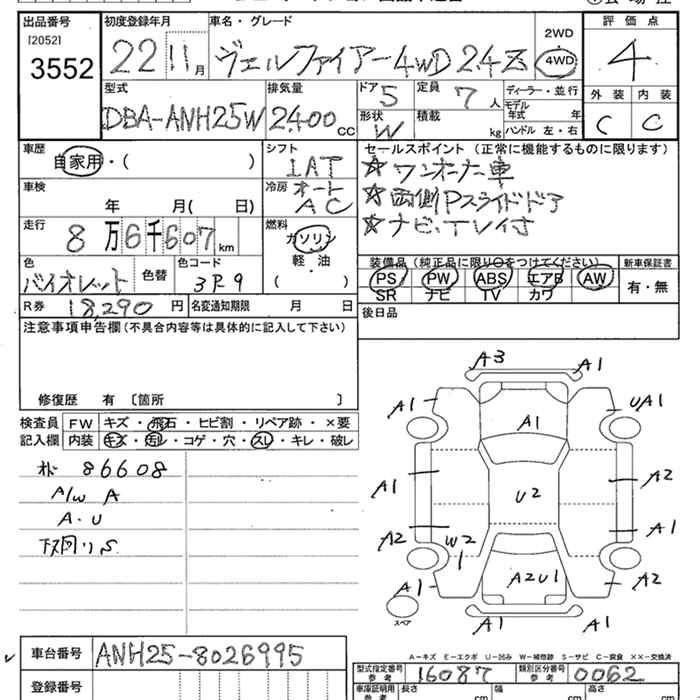 出品番号 初度登録年月 車名・グレード 評価点
[2052] 3552 22 11月 ヴェルファイアー4WD 2.4Z 2WD 4WD 4
型式 排気量 ドア 5 定員 7人 ディーラー・並行 外装 内装
DBA-ANH25W 2,400cc 形状 W 積載 kg モデル年式 年 ハンドル 左・右 C C
車歴 シフト セールスポイント (正常に機能するものに限ります)
自家用・( ) IAT ☆ワンオーナー車
車検 冷房 オート ☆両側Pスライドドア
年 月( 日) AC ☆ナビ、TV付
走行 燃料
8万6千607km ガソリン 装備品(純正品に限り○をつけてください) 新車保証書
色 色替 色コード 軽・油 PS PW ABS エアB AW 有・無
バイオレット 3R9 ( ) SR ナビ TV カワ
R券 18,290円 名変通知期限 月 日 後日品
注意事項申告欄(不具合内容等は具体的に記入して下さい)
修復歴 有 〔箇所 〕
検査員 FW キズ・飛石・ヒビ割・リペア跡・×要
記入欄 内装 キズ・汚レ・コゲ・穴・スレ・キレ・破レ
86608
A/W A
A・U
A3 A1
A1 A1 UA1
A1 U2 A2
A2 W2 A1
1
A1 A2U1 A2
スペア A1 A1
A-キズ E-エクボ U-凹み W-補修跡 S-サビ C-腐食 ××-交換済
車台番号 ANH25-8026995 型式指定番号 参考 16087 類別区分番号 参考 0062
登録番号 車庫証明用 参考 長さ cm 幅 cm 高さ cm